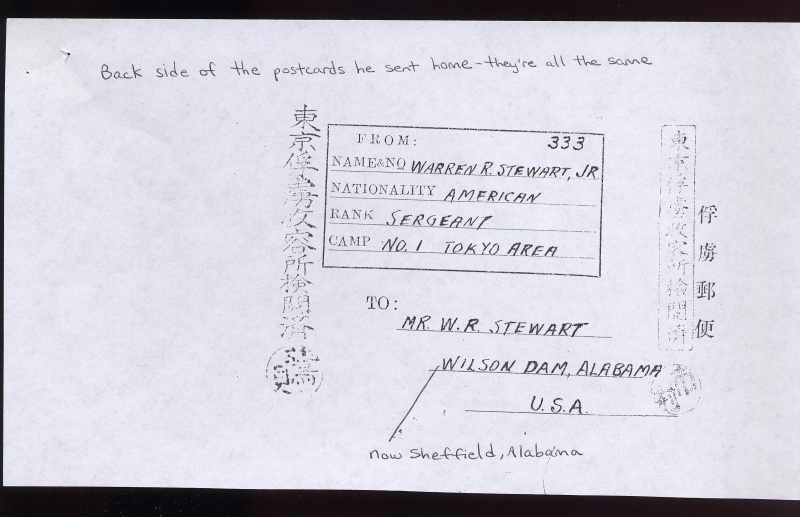 Back side of the postcards he sent home - they're all the same
東京俘虜収容所検閲済
FROM: 333
NAME&NO WARREN R. STEWART, JR
NATIONALITY AMERICAN
RANK SERGEANT
CAMP NO. 1 TOKYO AREA
東京俘虜収容所検閲済
俘虜郵便
TO:
MR. W. R. STEWART
WILSON DAM, ALABAMA
U.S.A.
now Sheffield, Alabama